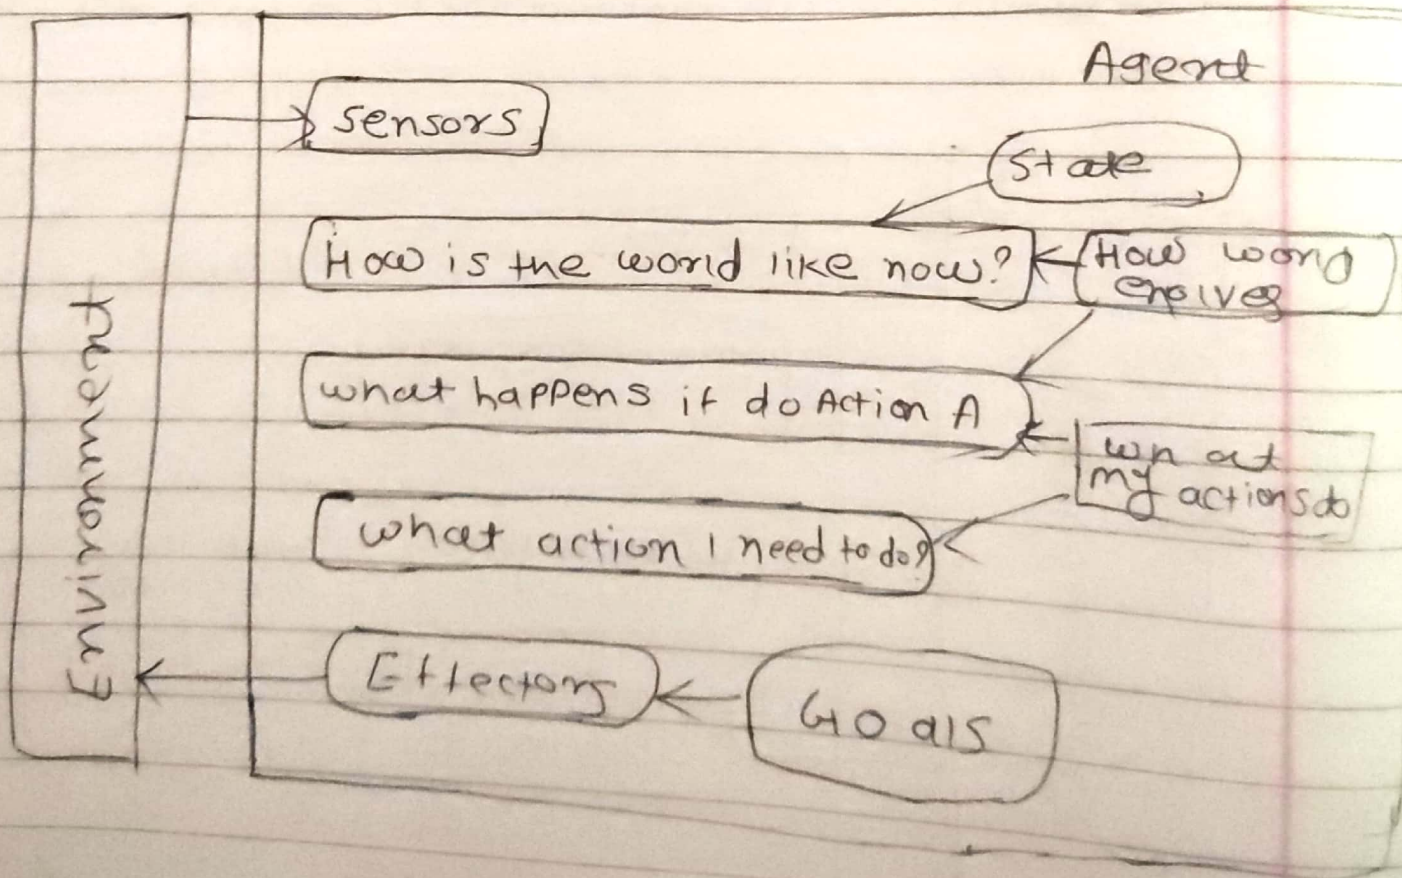 Agent
sensors
State
How is the world like now?
How world
evolves
what happens if do Action A
what
my actions do
what action I need to do?
Effectors
Goals
Environment